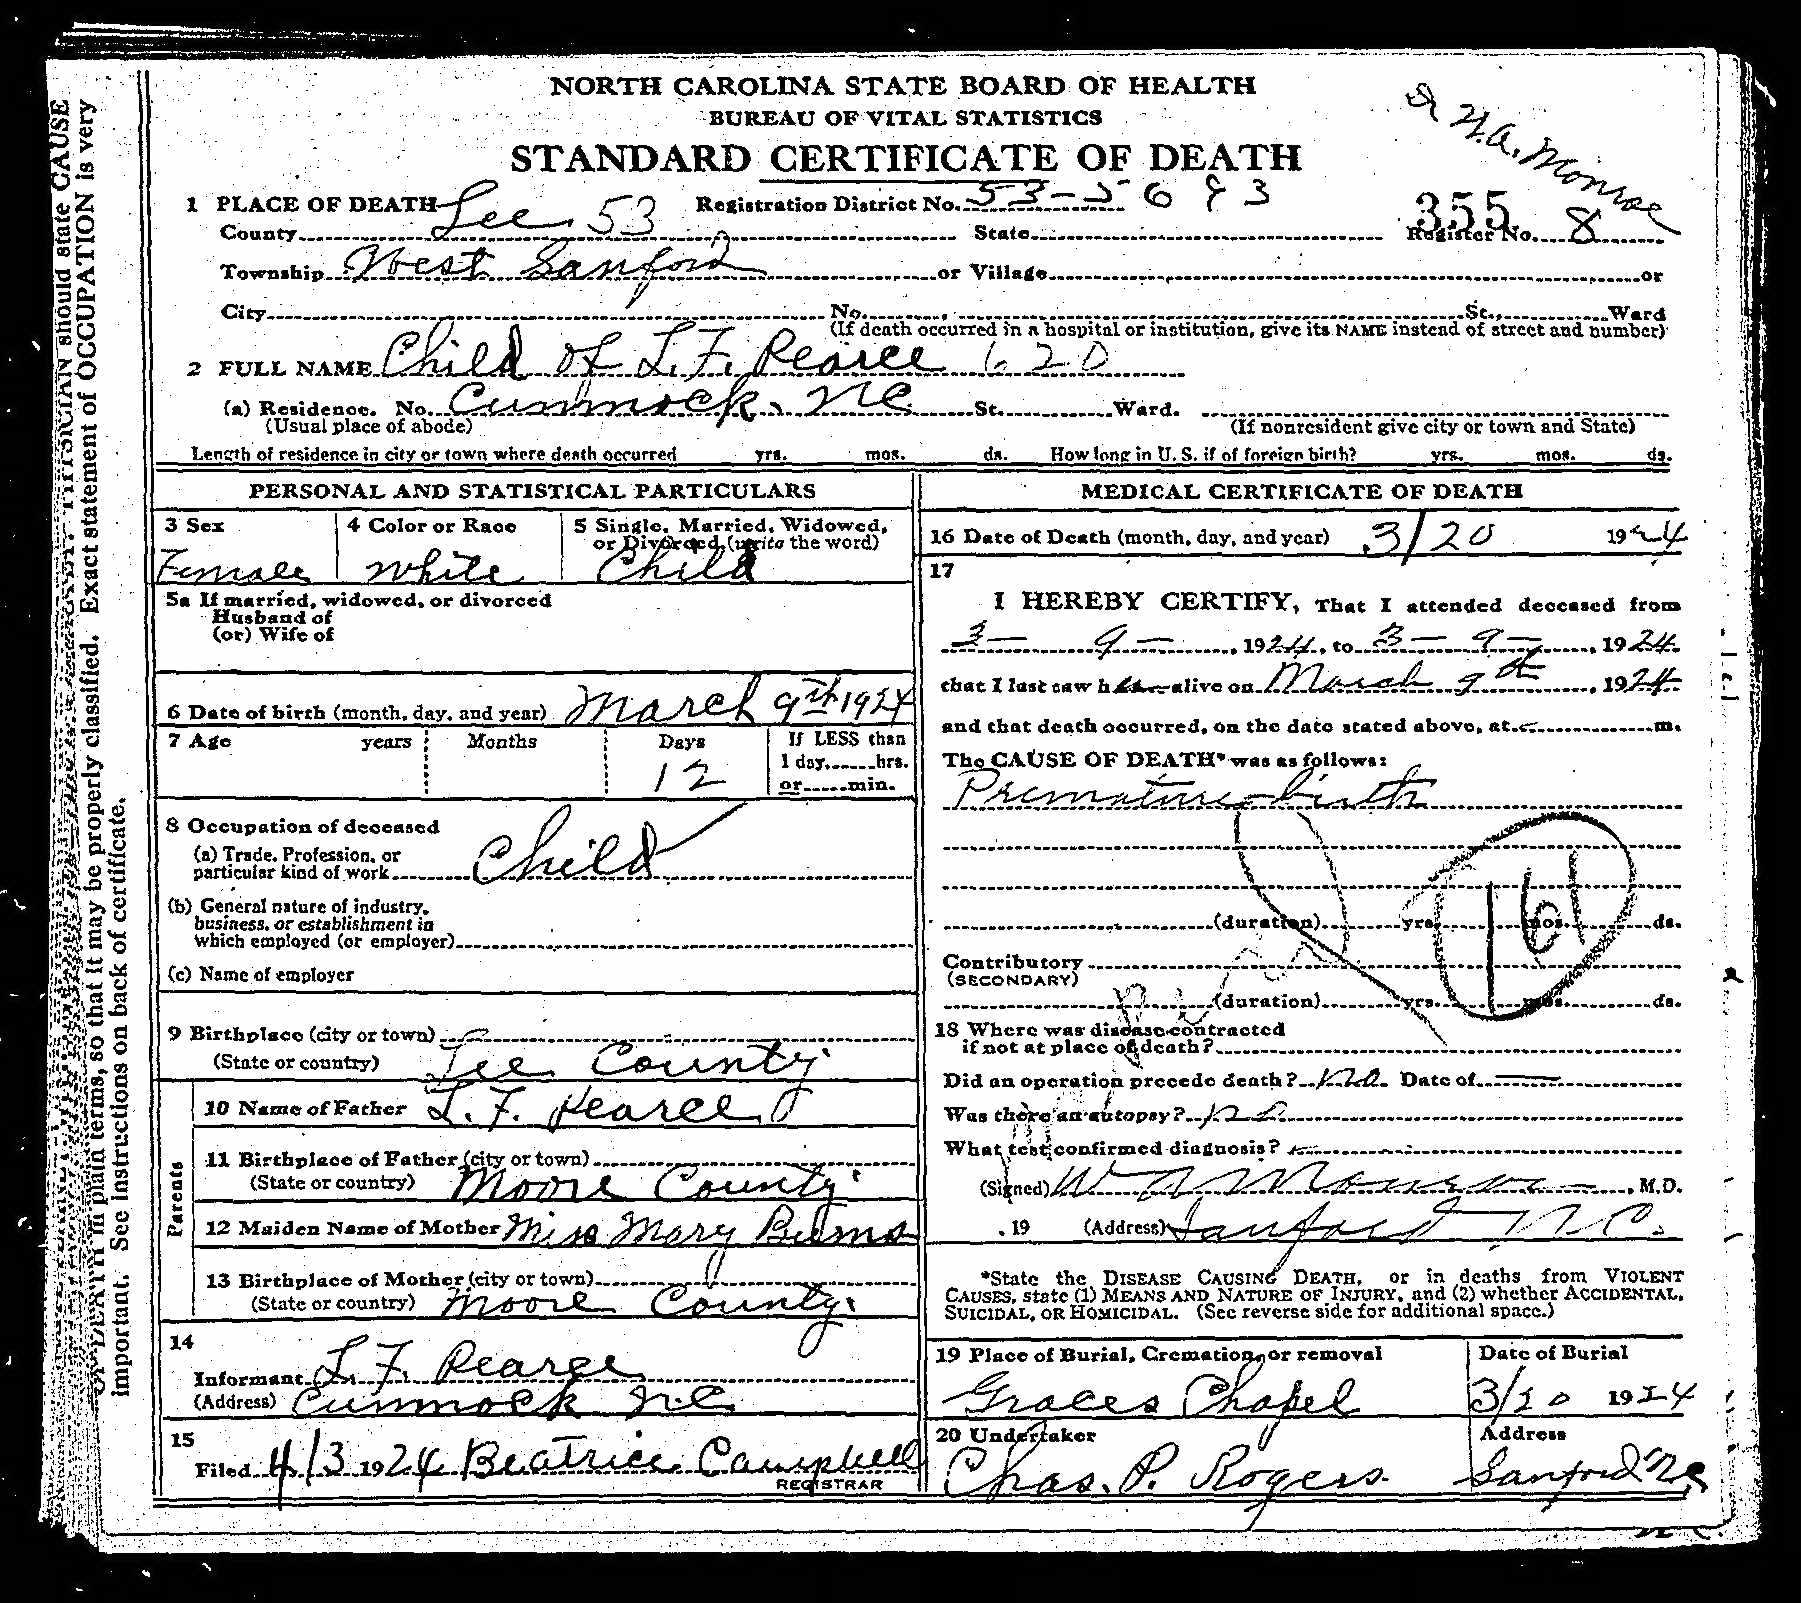 NORTH CAROLINA STATE BOARD OF HEALTH
BUREAU OF VITAL STATISTICS
STANDARD CERTIFICATE OF DEATH
W.A. Monroe
1 PLACE OF DEATH Lee 53 Registration District No. 53-5693 355
County State Register No. 8
Township West Sanford or Village or
City No. St., Ward
(If death occurred in a hospital or institution, give its NAME instead of street and number)
2 FULL NAME Child of L. F. Pearce 620
(a) Residence. No. Cummock, NC St. Ward.
(Usual place of abode) (If nonresident give city or town and State)
Length of residence in city or town where death occurred yrs. mos. ds. How long in U. S. if of foreign birth? yrs. mos. ds.
PERSONAL AND STATISTICAL PARTICULARS
3 Sex 4 Color or Race 5 Single, Married, Widowed, or Divorced (write the word)
Female White Child
5a If married, widowed, or divorced
Husband of
(or) Wife of
6 Date of birth (month, day, and year) March 9th 1924
7 Age years Months Days If LESS than
12 1 day, hrs.
or min.
8 Occupation of deceased
(a) Trade, Profession, or
particular kind of work Child
(b) General nature of industry,
business, or establishment in
which employed (or employer)
(c) Name of employer
9 Birthplace (city or town)
(State or country) Lee County
Parents
10 Name of Father L. F. Pearce
11 Birthplace of Father (city or town)
(State or country) Moore County
12 Maiden Name of Mother Miss Mary Burns
13 Birthplace of Mother (city or town)
(State or country) Moore County
14
Informant L. F. Pearce
(Address) Cummock N.C
15
Filed 4/3 1924 Beatrice Campbell
REGISTRAR
MEDICAL CERTIFICATE OF DEATH
16 Date of Death (month, day, and year) 3/20 1924
17
I HEREBY CERTIFY, That I attended deceased from
3 - 9 - , 1924, to 3 - 9 - , 1924
that I last saw h alive on March 9th , 1924
and that death occurred, on the date stated above, at m.
The CAUSE OF DEATH* was as follows:
Premature birth
161
(duration) yrs. mos. ds.
Contributory
(SECONDARY)
(duration) yrs. mos. ds.
18 Where was disease contracted
if not at place of death?
Did an operation precede death? no. Date of
Was there an autopsy? no
What test confirmed diagnosis?
(Signed) W A Monroe , M.D.
, 19 (Address) Sanford N.C.
*State the DISEASE CAUSING DEATH, or in deaths from VIOLENT
CAUSES, state (1) MEANS AND NATURE OF INJURY, and (2) whether ACCIDENTAL,
SUICIDAL, OR HOMICIDAL. (See reverse side for additional space.)
19 Place of Burial, Cremation, or removal Date of Burial
Graces Chapel 3/20 1924
20 Undertaker Address
Chas. P. Rogers Sanford N.C
PHYSICIAN should state CAUSE
OF DEATH in plain terms, so that it may be properly classified. Exact statement of OCCUPATION is very
important. See instructions on back of certificate.